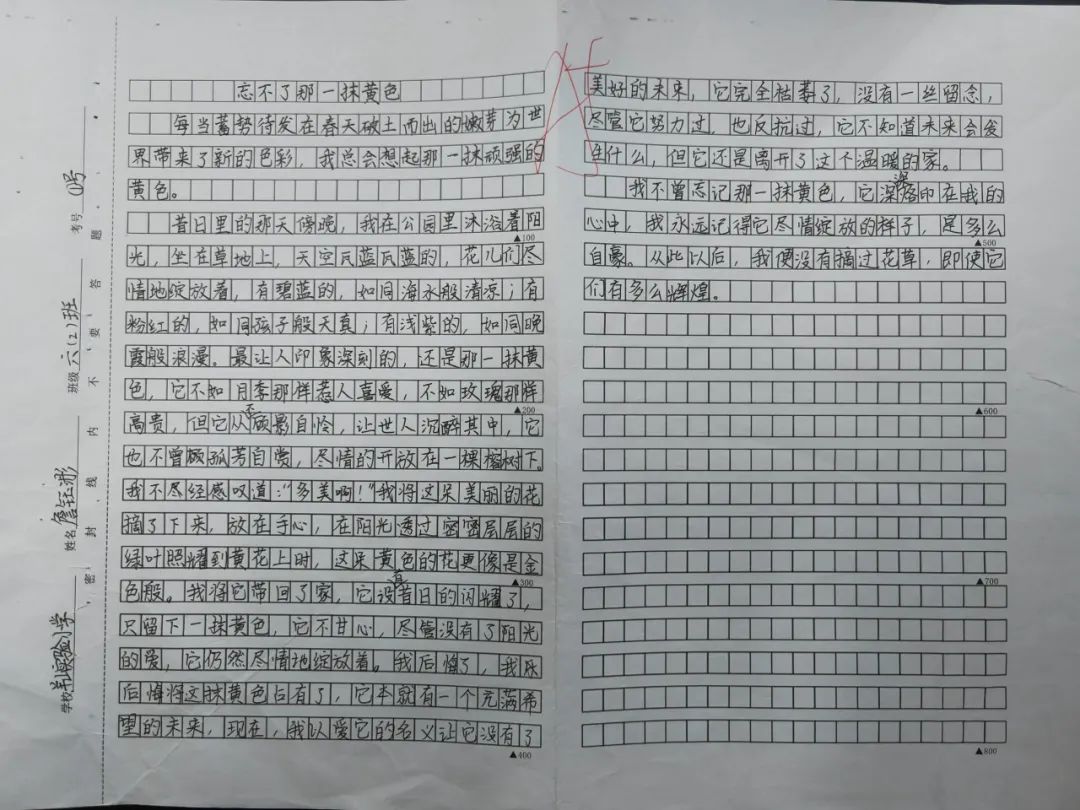 忘不了那一抹黄色
每当蓄势待发在春天破土而出的嫩芽为世
界带来了新的色彩，我总会想起那一抹顽强的
黄色。
昔日里的那天傍晚，我在公园里沐浴着阳
光，坐在草地上，天空瓦蓝瓦蓝的，花儿们尽
情地绽放着，有碧蓝的，如同海水般清凉；有
粉红的，如同孩子般天真；有浅紫的，如同晚
霞般浪漫。最让人印象深刻的，还是那一抹黄
色，它不如月季那样惹人喜爱，不如玫瑰那样
高贵，但它从不顾影自怜，让世人沉醉其中，它
也不曾孤芳自赏，尽情的开放在一棵榕树下。
我不尽经感叹道：“多美啊！”我将这朵美丽的花
摘了下来，放在手心，在阳光透过密密层层的
绿叶照耀到黄花上时，这朵黄色的花更像是金
色般。我将它带回了家，它没有昔日的闪耀了，
只留下一抹黄色，它不甘心，尽管没有了阳光
的爱，它仍然尽情地绽放着。我后悔了，我
后悔将这抹黄色占有了，它本就有一个充满希
望的未来，现在，我以爱它的名义让它没有了
美好的未来，它完全枯萎了，没有一丝留念，
尽管它努力过，也反抗过，它不知道未来会发
生什么，但它还是离开了这个温暖的家。
我不曾忘记那一抹黄色，它深深烙印在我的
心中，我永远记得它尽情绽放的样子，是多么
自豪。从此以后，我便没有摘过花草，即使它
们有多么辉煌。
▲100
▲200
▲300
▲400
▲500
▲600
▲700
▲800
学校 实验小学
姓名 詹钰
班级 六（2）班
考号 0号
密封线内不要答题